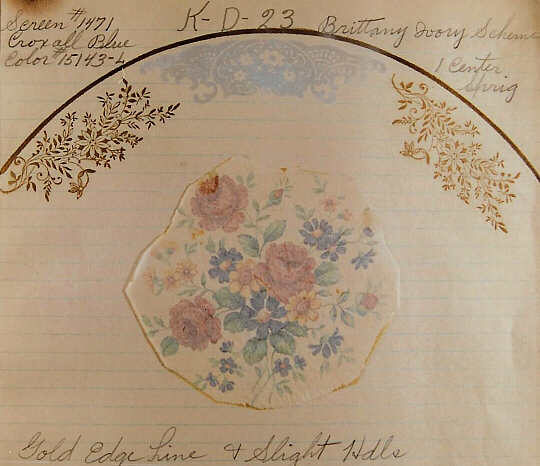 Screen #1471
Croxall Blue
Color #15143-L
K-D-23 Brittany Ivory Scheme
1 Center
Sprig
Gold Edge Line & Slight Hdls